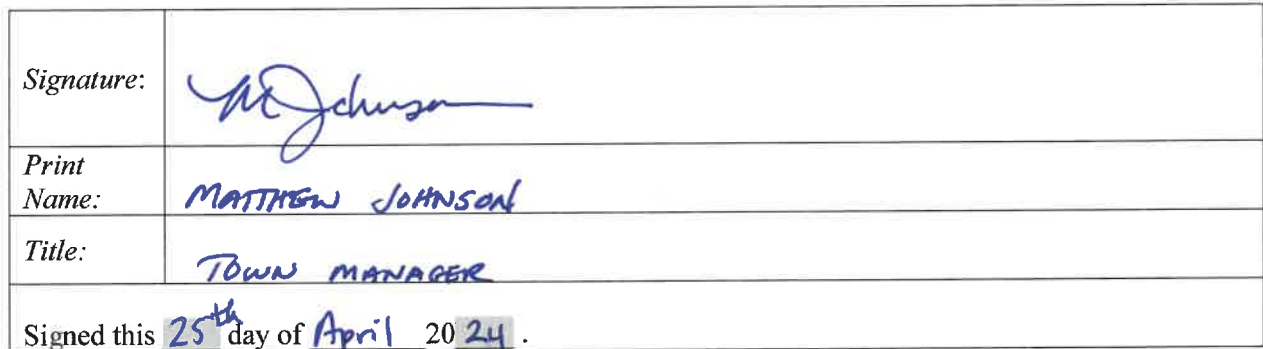 Signature: MJohnson
Print
Name: MATTHEW JOHNSON
Title: TOWN MANAGER
Signed this 25th day of April 2024.